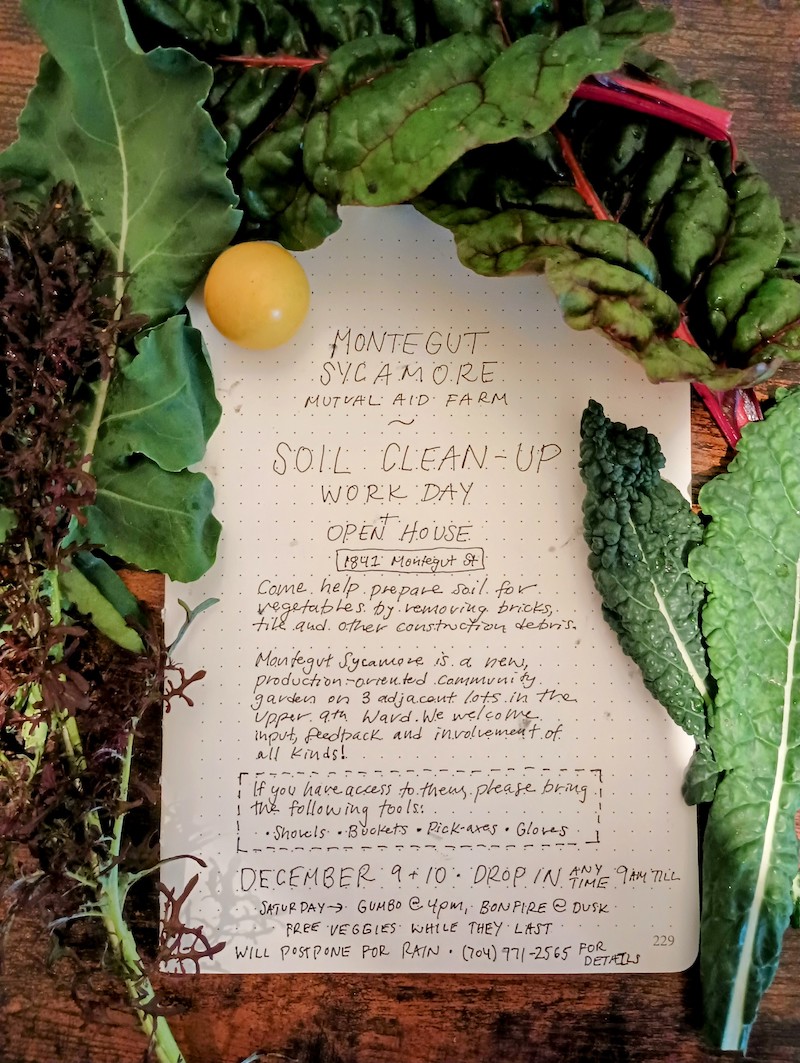 MONTEGUT
SYCAMORE
MUTUAL AID FARM
~
SOIL CLEAN-UP
WORK DAY
+
OPEN HOUSE
1841 Montegut St
Come help prepare soil for
vegetables by removing bricks,
tile and other construction debris.
Montegut Sycamore is a new,
production-oriented community
garden on 3 adjacent lots in the
Upper 9th Ward. We welcome
input, feedback and involvement of
all kinds!
If you have access to them, please bring
the following tools:
• Shovels • Buckets • Pick-axes • Gloves
DECEMBER 9 + 10 • DROP IN ANY TIME 9AM TILL
SATURDAY → GUMBO @ 4pm, BONFIRE @ DUSK
FREE VEGGIES WHILE THEY LAST
WILL POSTPONE FOR RAIN • (704) 971-2565 FOR DETAILS
229